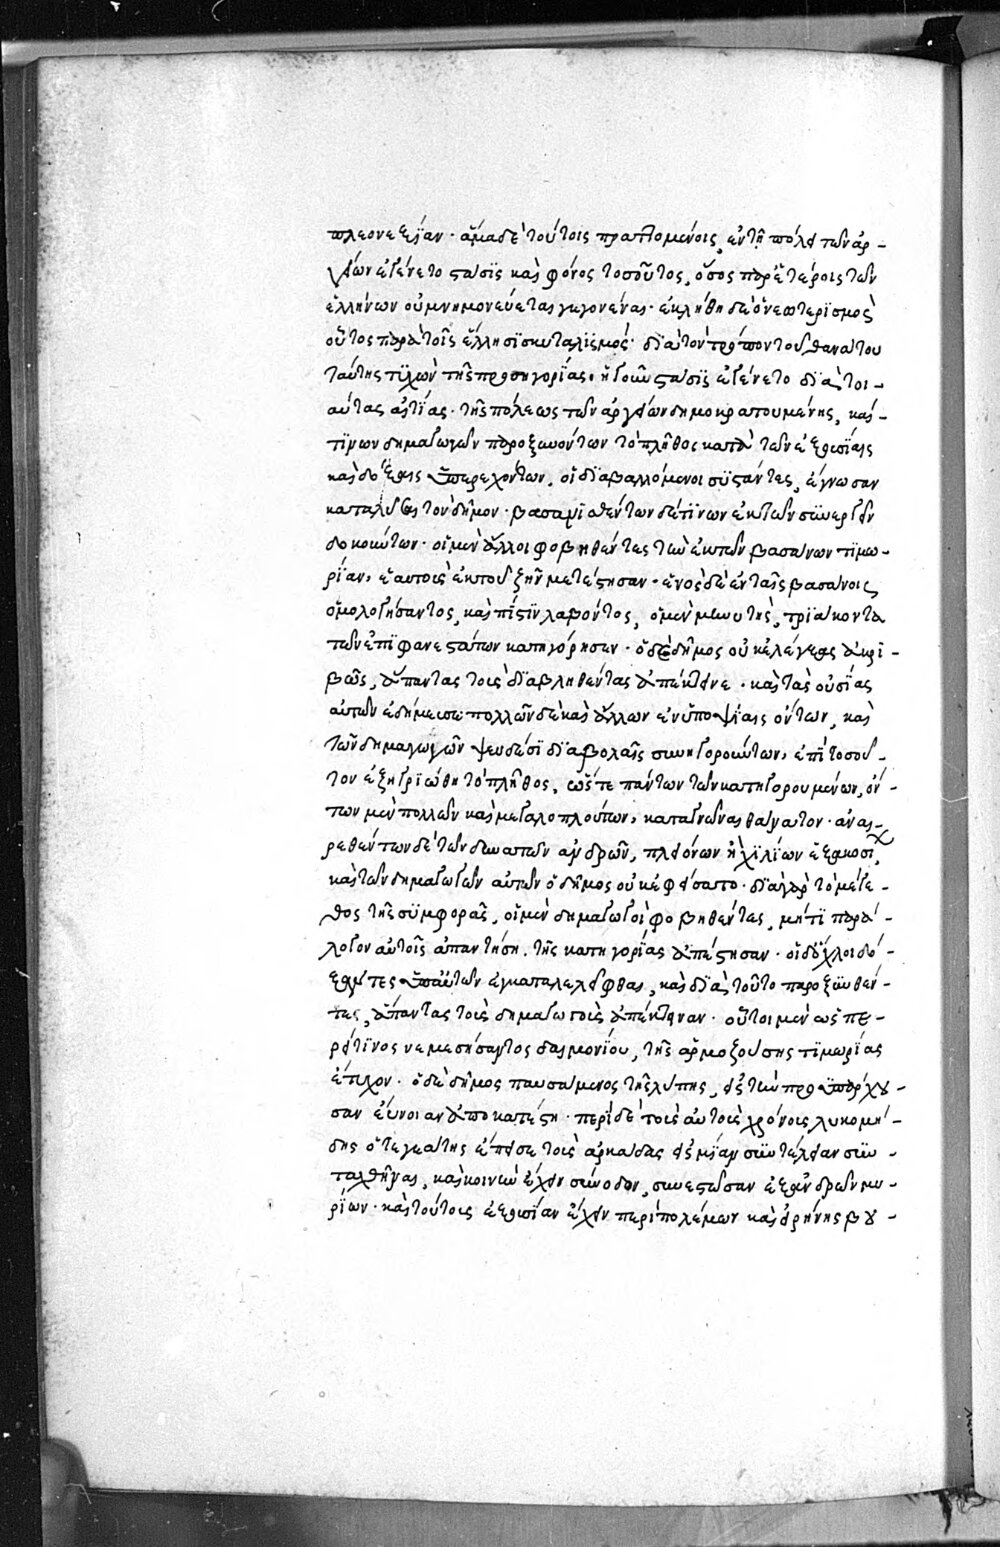 πλεονεξίαν· ἅμα δὲ τούτοις πραττομένοις, ἐν τῇ πόλει τῶν ἀρ-
γείων ἐγένετο στάσις καὶ φόνος τοσοῦτος, ὅσος παρ' ἑτέροις τῶν
ἑλλήνων οὐ μνημονεύεται γεγονέναι· ἐκλήθη δὲ ὁ νεωτερισμὸς
οὗτος παρὰ τοῖς ἕλλησι σκυταλισμός· διὰ τὸν τρόπον τοῦ θανάτου
ταύτης τυχὼν τῆς προσηγορίας, ἡ γοῦν στάσις ἐγένετο διὰ τοι-
αύτας αἰτίας· τῆς πόλεως τῶν ἀργείων δημοκρατουμένης, καί
τινων δημαγωγῶν παροξυνόντων τὸ πλῆθος κατὰ τῶν ἐξουσίαις
καὶ δόξαις ὑπερεχόντων, οἱ διαβαλλόμενοι συστάντες, ἔγνωσαν
καταλῦσαι τὸν δῆμον· βασανισθέντων δέ τινων ἐκ τῶν συνεργεῖν
δοκούντων· οἱ μὲν ἄλλοι φοβηθέντες τὴν ἐκ τῶν βασάνων τιμω-
ρίαν, ἑαυτοὺς ἐκ τοῦ ζῆν μετέστησαν· ἑνὸς δὲ ἐν ταῖς βασάνοις
ὁμολογήσαντος, καὶ πίστιν λαβόντος, ὁ μὲν μηνυτὴς, τριάκοντα
τῶν ἐπιφανεστάτων κατηγόρησεν· ὁ δὲ δῆμος οὐκ ἐλέγξας ἀκρι-
βῶς, ἅπαντας τοὺς διαβληθέντας ἀπέκτεινε· καὶ τὰς οὐσίας
αὐτῶν ἐδήμευσε πολλῶν δὲ καὶ ἄλλων ἐν ὑποψίαις ὄντων, καὶ
τῶν δημαγωγῶν ψευδέσι διαβολαῖς συνηγορούντων, ἐπὶ τοσοῦ-
τον ἐξηγριώθη τὸ πλῆθος, ὥστε πάντων τῶν κατηγορουμένων, ὄν-
των μὲν πολλῶν καὶ μεγαλοπλούτων, καταγνῶναι θάνατον· ἀναι-
ρεθέντων δὲ τῶν δυνατῶν ἀνδρῶν, πλειόνων ἢ χιλίων ἑξακοσί,
καὶ τῶν δημαγωγῶν αὐτῶν ὁ δῆμος οὐκ ἐφείσατο· διὰ γὰρ τὸ μέγε-
θος τῆς συμφορᾶς, οἱ μὲν δημαγωγοὶ φοβηθέντες, μή τι παρά-
λογον αὐτοῖς ἀπαντήση, τῆς κατηγορίας ἀπέστησαν· οἱ δ' ὄχλοι δό-
ξαντες ὑπ' αὐτῶν ἐγκαταλελεῖφθαι, καὶ διὰ τοῦτο παροξυνθέν-
τες, ἅπαντας τοὺς δημαγωγοὺς ἀπέκτειναν· οὗτοι μὲν ὡσπε-
ρεί τινος νεμεσήσαντος δαιμονίου, τῆς ἁρμοζούσης τιμωρίας
ἔτυχον· ὁ δὲ δῆμος παυσάμενος τῆς λύπης, εἰς τὴν προϋπάρχου-
σαν εὔνοιαν ἀποκατέστη· περὶ δὲ τοὺς αὐτοὺς χρόνους λυκομή-
δης ὁ τεγεάτης ἔπεισε τοὺς ἀρκάδας εἰς μίαν συντέλειαν συν-
ταχθῆναι, καὶ κοινὴν ἔχειν σύνοδον, συνεστῶσαν ἐξ ἀνδρῶν μυ-
ρίων· καὶ τούτους ἐξουσίαν ἔχειν περὶ πολέμων καὶ εἰρήνης βου-